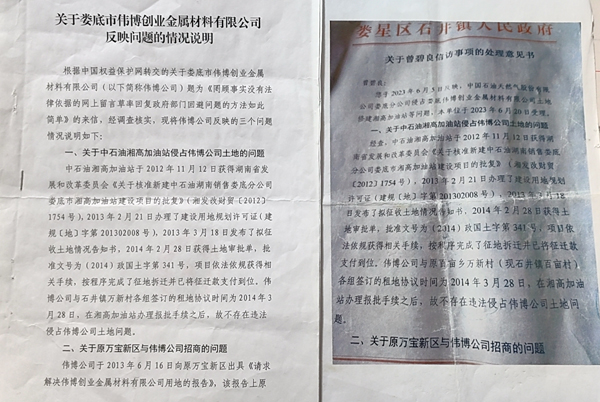 关于娄底市伟博创业金属材料有限公司
反映问题的情况说明
根据中国权益保护网转交的关于娄底市伟博创业金属
材料有限公司（以下简称伟博公司）题为《罔顾事实没有法
律依据的网上留言草率回复政府部门回避问题的方法如此
简单》的来信，经调查核实，现将伟博公司反映的三个问题
情况说明如下：
一、关于中石油湘高加油站侵占伟博公司土地的问题
中石油湘高加油站于 2012 年 11 月 12 日获得湖南省发
展和改革委员会《关于核准新建中石油湖南销售娄底分公司
娄底市湘高加油站建设项目的批复》（湘发改财贸〔2012〕
1754 号），2013 年 2 月 21 日办理了建设用地规划许可证（建
规［地］字第 201302008 号），2013 年 3 月 18 日发布了拟征收
土地情况告知书，2014 年 2 月 28 日获得土地审批单，批
准文号为（2014）政国土字第 341 号，项目依法依规获得相
关手续，按程序完成了征地拆迁并已将征迁款支付到位。伟
博公司与石井镇万新村各组签订的租地协议时间为 2014 年 3
月 28 日，在湘高加油站办理报批手续之后，故不存在违法
侵占伟博公司土地问题。
二、关于原万宝新区与伟博公司招商的问题
伟博公司于 2013 年 6 月 16 日向原万宝新区出具《请求
解决伟博创业金属材料有限公司用地的报告》，该报告上原
娄星区石井镇人民政府
关于曾碧良信访事项的处理意见书
曾碧良：
您于 2023 年 6 月 5 日反映，中国石油天然气股份有限
公司娄底分公司侵占娄底伟博创业金属材料有限公司土地
搭建湘高加油站等问题，本单位于 2023 年 6 月 20 日受理。
一、关于中石油湘高加油站侵占伟博公司土地的问题
经查，中石油湘高加油站于 2012 年 11 月 12 日获得湖
南省发展和改革委员会《关于核准新建中石油湖南销售娄底
分公司娄底市湘高加油站建设项目的批复》（湘发改财贸
〔2012〕1754 号），2013 年 2 月 21 日办理了建设用地规划
许可证（建规［地］字第 201302008 号），2013 年 3 月 18
日发布了拟征收土地情况告知书，2014 年 2 月 28 日获得土
地审批单，批准文号为（2014）政国土字第 341 号，项目依
法依规获得相关手续，按程序完成了征地拆迁并已将征迁款
支付到位。伟博公司与原百亩乡万新村（现石井镇百亩村）
各组签订的租地协议时间为 2014 年 3 月 28 日，在湘高加油
站办理报批手续之后，故不存在违法侵占伟博公司土地问
题。
二、关于原万宝新区与伟博公司招商的问题